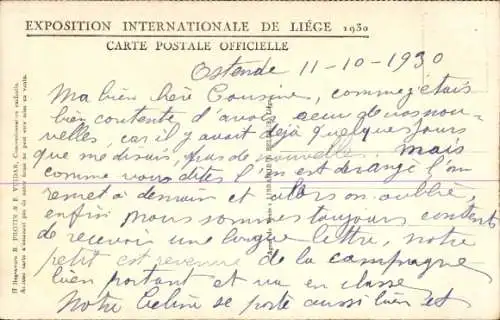 EXPOSITION INTERNATIONALE DE LIÉGE 1930
CARTE POSTALE OFFICIELLE
Ostende 11-10-1930
Ma bien chère Cousine, comme j'étais
bien contente d'avoir ceur de vos nou-
velles, car il y avait déjà quelques jours
que me disais, pas de nouvelle. Mais
comme vous dites l'on est dérangé l'on
remet à demain et alors on oublie,
enfin nous sommes toujours contents
de recevoir une longue lettre, notre
petit est revenu de la campagne
bien portant et va en classe
Notre Céline se porte aussi bien et